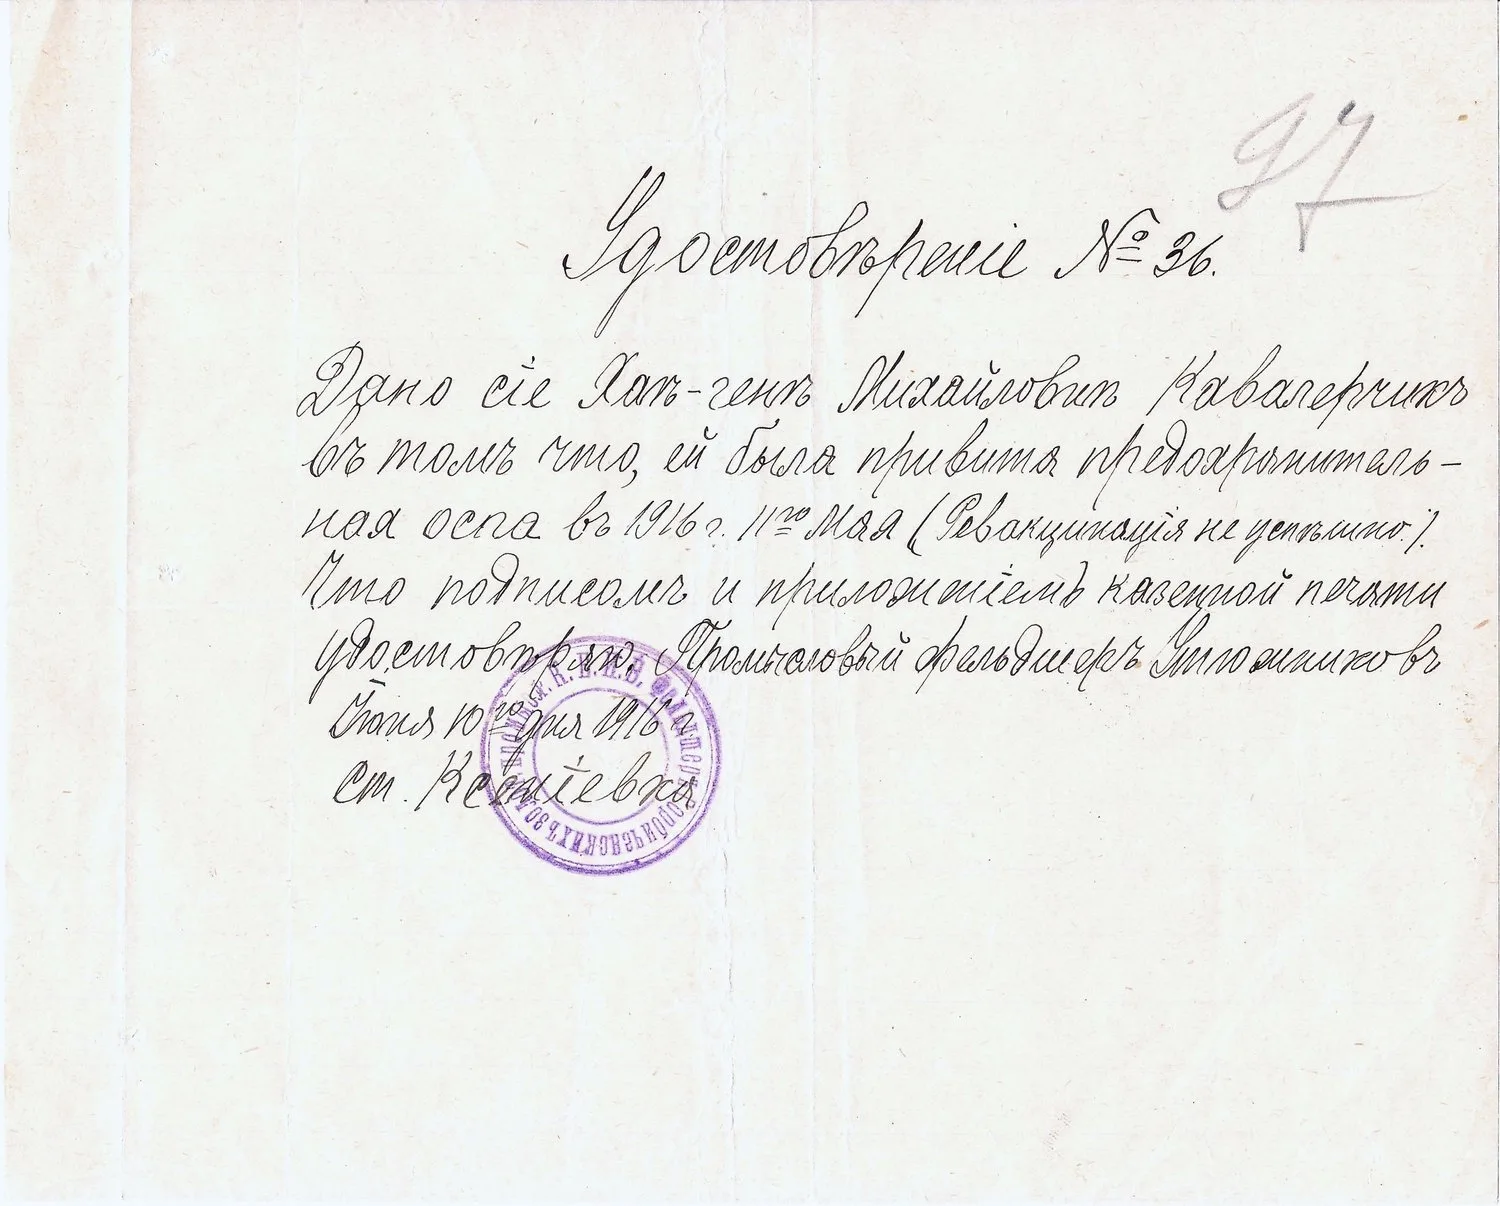 97
Удостовѣреніе № 36.
Дано сіе Хаъ-генѣ Михайловнѣ Кавалерчикъ
въ томъ что, ей была привита предохранитель-
ная оспа въ 1916 г. 11го Мая (Ревакцинація не успѣшно.).
Что подписомъ и приложеніемъ казенной печати
удостовѣряю. Промысловый фельдшеръ Утюжниковъ
Іюня 10го дня 1916 г
ст. Ксеніевка
К. Е. И. В. Фельдшеръ